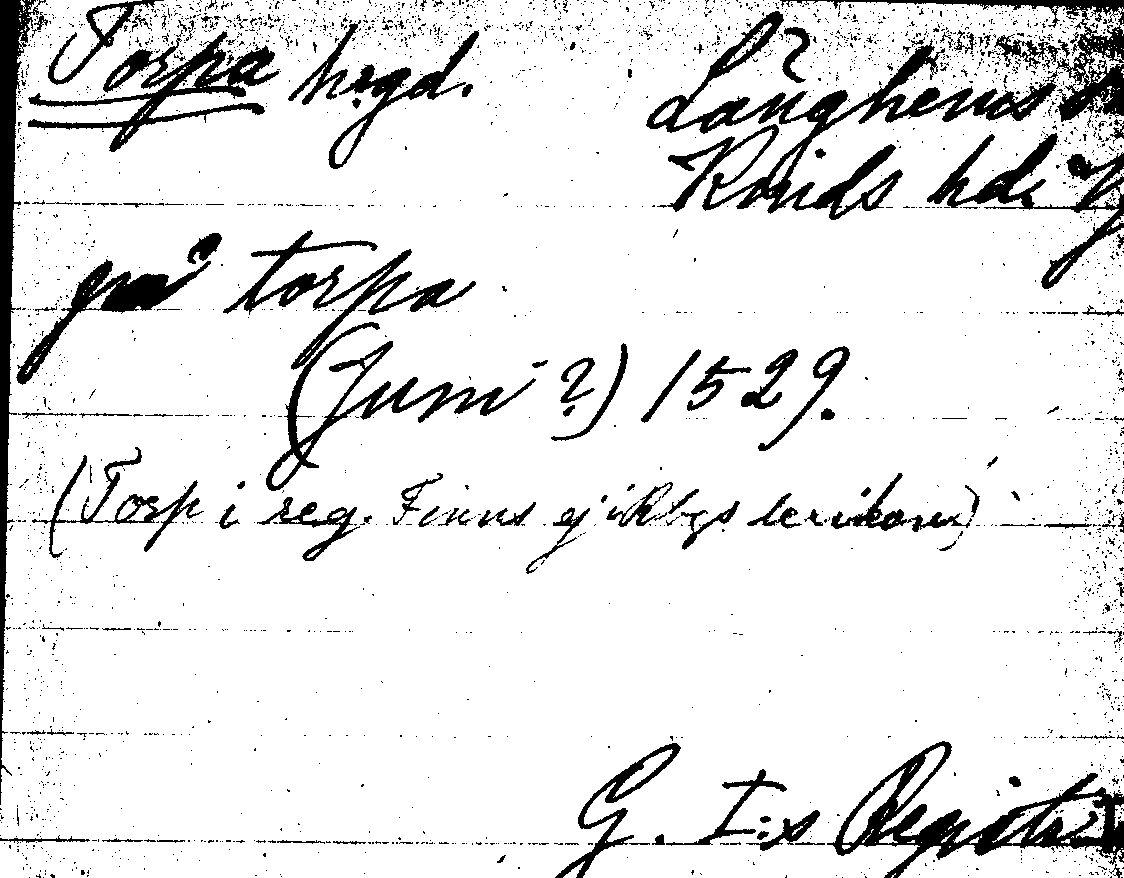 Torpa hrgd. Långhems
Kinds hd. Vg
på torpa
(Juni ?) 1529.
(Torp i reg. Finns ej i Rbgs lexikon)
G. I:s Registr